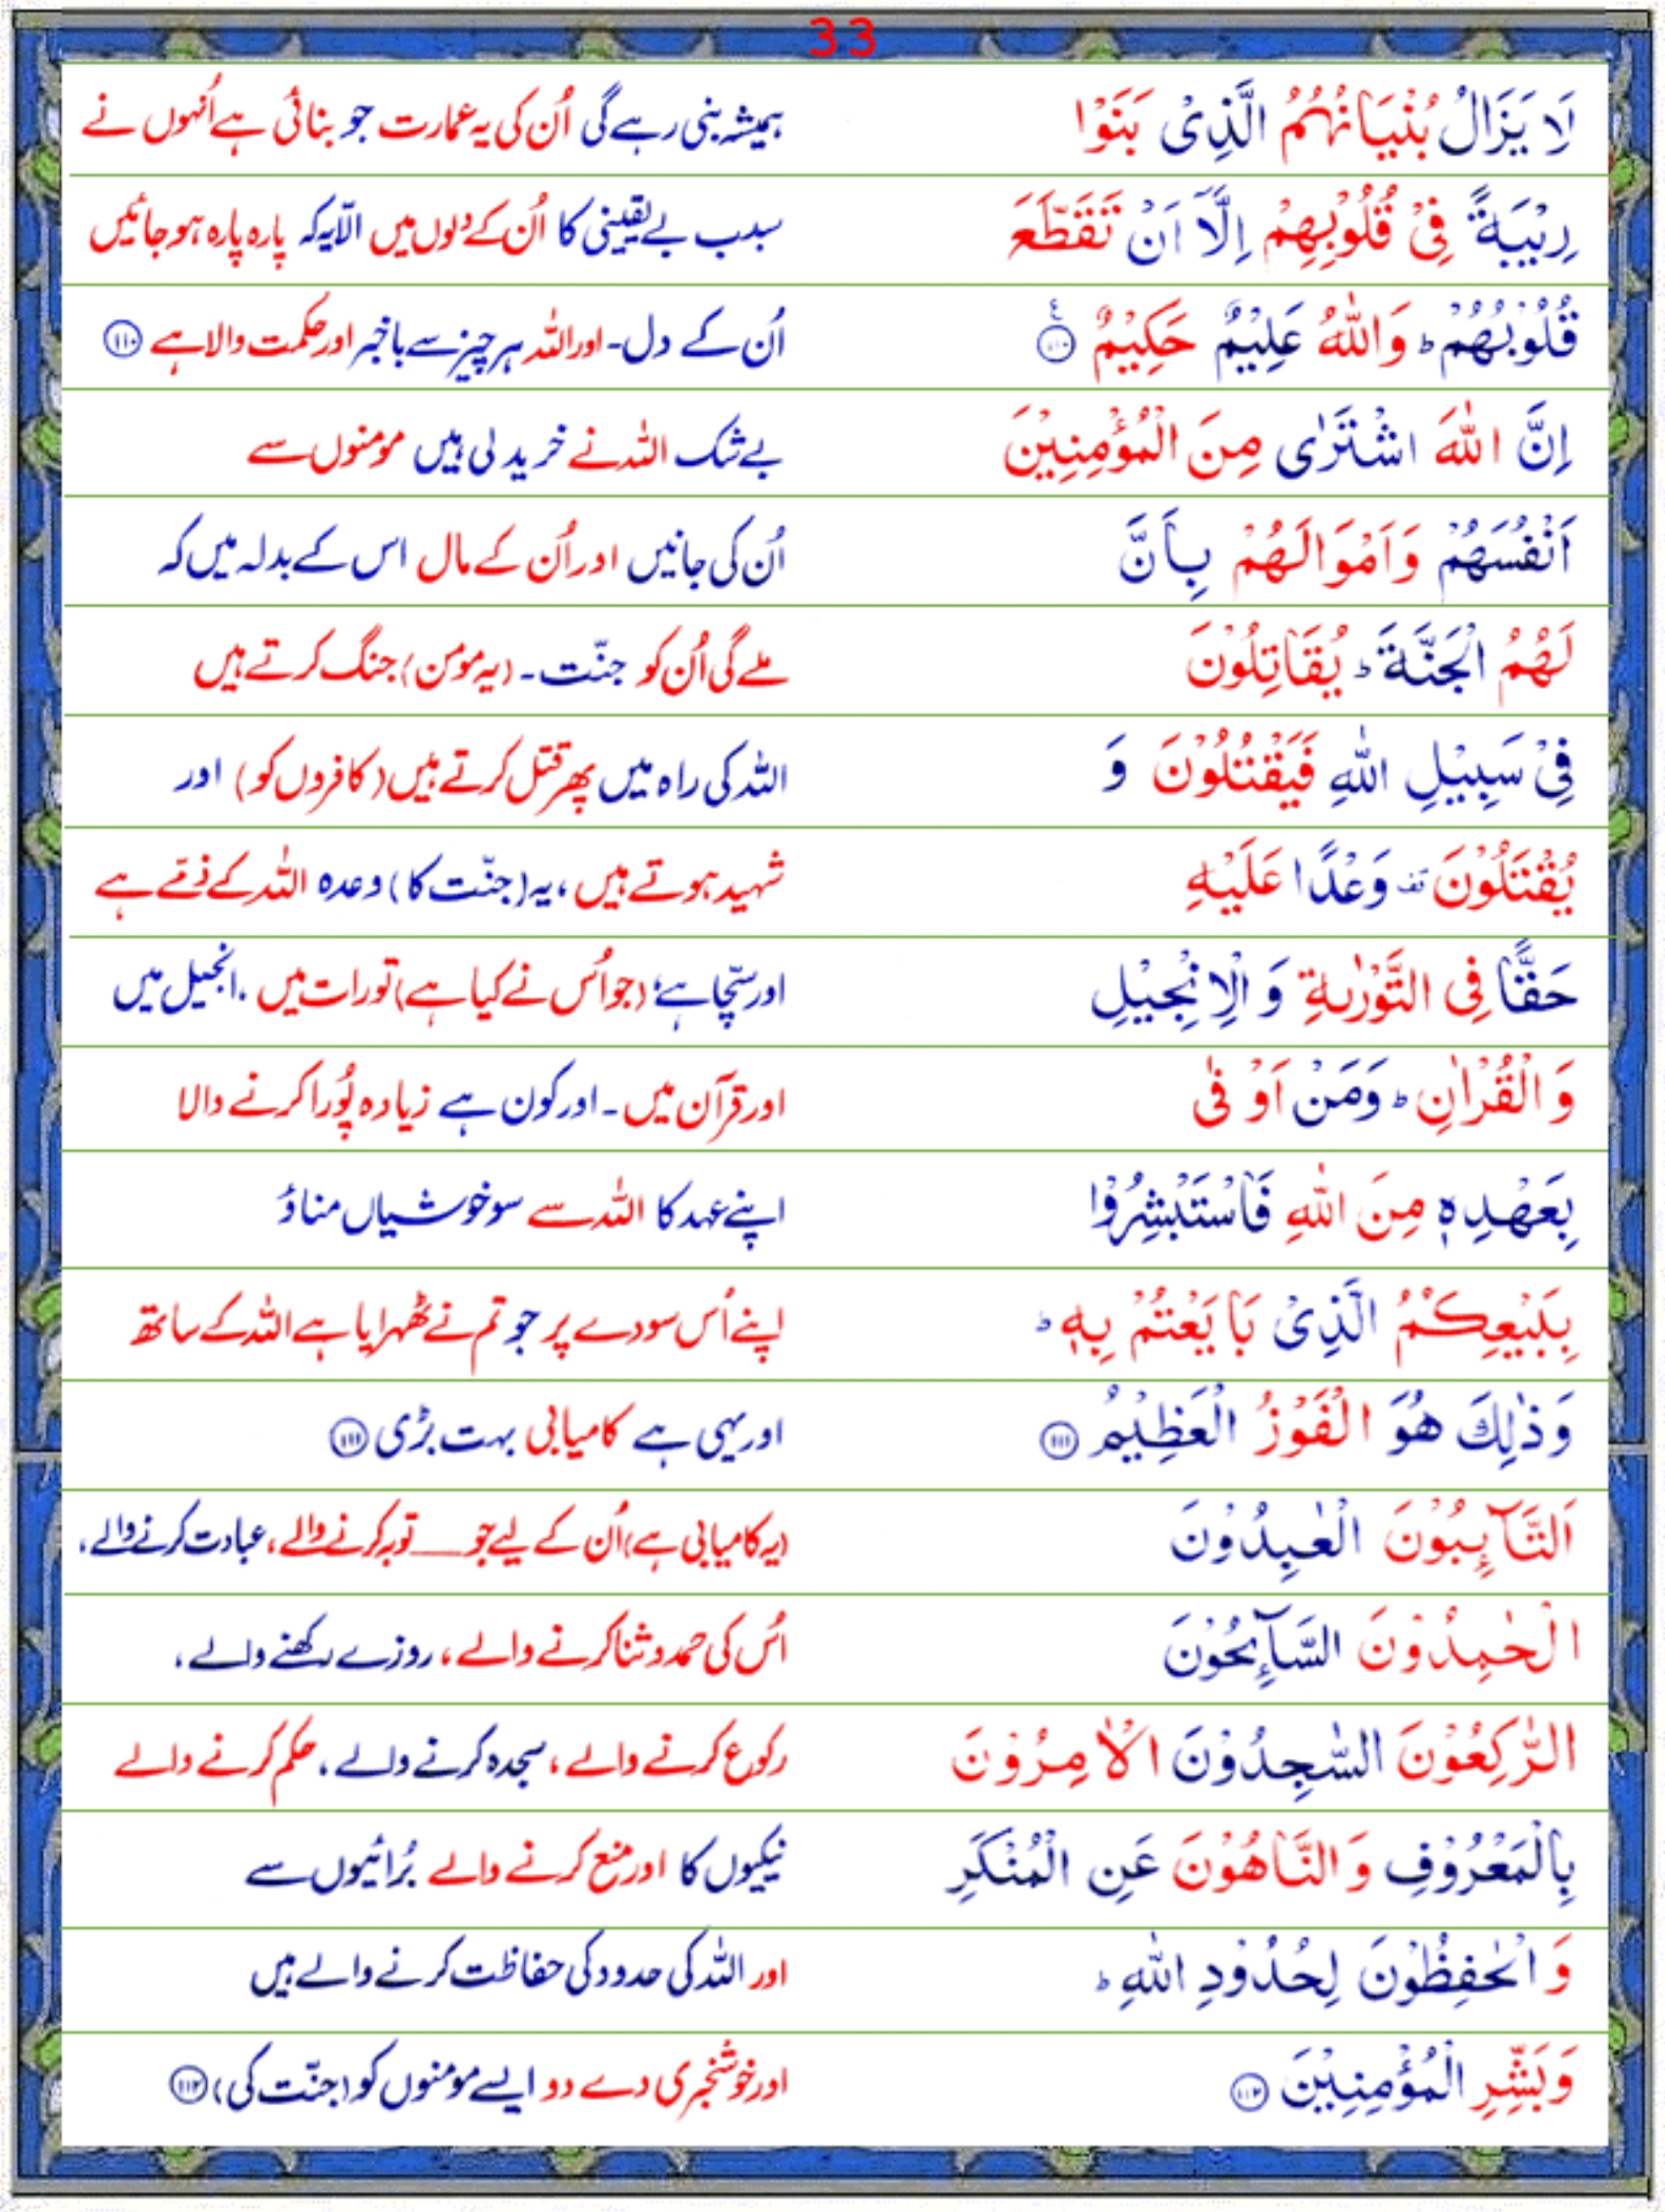 33
لَا يَزَالُ بُنْيَانُهُمُ الَّذِیْ بَنَوْا ہمیشہ بنی رہے گی اُن کی یہ عمارت جو بنائی ہے اُنہوں نے
رِيْبَةً فِیْ قُلُوْبِهِمْ اِلَّاۤ اَنْ تَقَطَّعَ سبب بے یقینی کا اُن کے دلوں میں الّا یہ کہ پارہ پارہ ہو جائیں
قُلُوْبُهُمْ ؕ وَاللّٰهُ عَلِيْمٌ حَكِيْمٌ ﴿۱۱۰﴾ اُن کے دل۔ اور اللہ ہر چیز سے باخبر اور حکمت والا ہے ﴿۱۱۰﴾
اِنَّ اللّٰهَ اشْتَرٰی مِنَ الْمُؤْمِنِيْنَ بے شک اللہ نے خرید لی ہیں مومنوں سے
اَنْفُسَهُمْ وَاَمْوَالَهُمْ بِاَنَّ اُن کی جانیں اور اُن کے مال اس کے بدلہ میں کہ
لَهُمُ الْجَنَّةَ ؕ يُقَاتِلُوْنَ ملے گی اُن کو جنّت۔ (یہ مومن) جنگ کرتے ہیں
فِیْ سَبِيْلِ اللّٰهِ فَيَقْتُلُوْنَ وَ اللہ کی راہ میں پھر قتل کرتے ہیں (کافروں کو) اور
يُقْتَلُوْنَ قف وَعْدًا عَلَيْهِ شہید ہوتے ہیں، یہ (جنّت کا) وعدہ اللہ کے ذمّے ہے
حَقًّا فِی التَّوْرٰىةِ وَ الْاِنْجِيْلِ اور سچّا ہے، (جو اُس نے کیا ہے) تورات میں، انجیل میں
وَ الْقُرْاٰنِ ؕ وَمَنْ اَوْ فٰی اور قرآن میں۔ اور کون ہے زیادہ پُورا کرنے والا
بِعَهْدِهٖ مِنَ اللّٰهِ فَاسْتَبْشِرُوْا اپنے عہد کا اللہ سے سو خوشیاں مناؤ
بِبَيْعِكُمُ الَّذِیْ بَايَعْتُمْ بِهٖ ؕ اپنے اُس سودے پر جو تم نے ٹھہرایا ہے اللہ کے ساتھ
وَذٰلِكَ هُوَ الْفَوْزُ الْعَظِيْمُ ﴿۱۱۱﴾ اور یہی ہے کامیابی بہت بڑی ﴿۱۱۱﴾
اَلتَّآئِبُوْنَ الْعٰبِدُوْنَ (یہ کامیابی ہے) اُن کے لیے جو ــــ توبہ کرنے والے، عبادت کرنے والے،
الْحٰمِدُوْنَ السَّآئِحُوْنَ اُس کی حمد و ثنا کرنے والے، روزے رکھنے والے،
الرّٰكِعُوْنَ السّٰجِدُوْنَ الْاٰمِرُوْنَ رکوع کرنے والے، سجدہ کرنے والے، حکم کرنے والے
بِالْمَعْرُوْفِ وَ النَّاهُوْنَ عَنِ الْمُنْكَرِ نیکیوں کا اور منع کرنے والے بُرائیوں سے
وَ الْحٰفِظُوْنَ لِحُدُوْدِ اللّٰهِ ؕ اور اللہ کی حدود کی حفاظت کرنے والے ہیں
وَبَشِّرِ الْمُؤْمِنِيْنَ ﴿۱۱۲﴾ اور خوشخبری دے دو ایسے مومنوں کو (جنّت کی) ﴿۱۱۲﴾